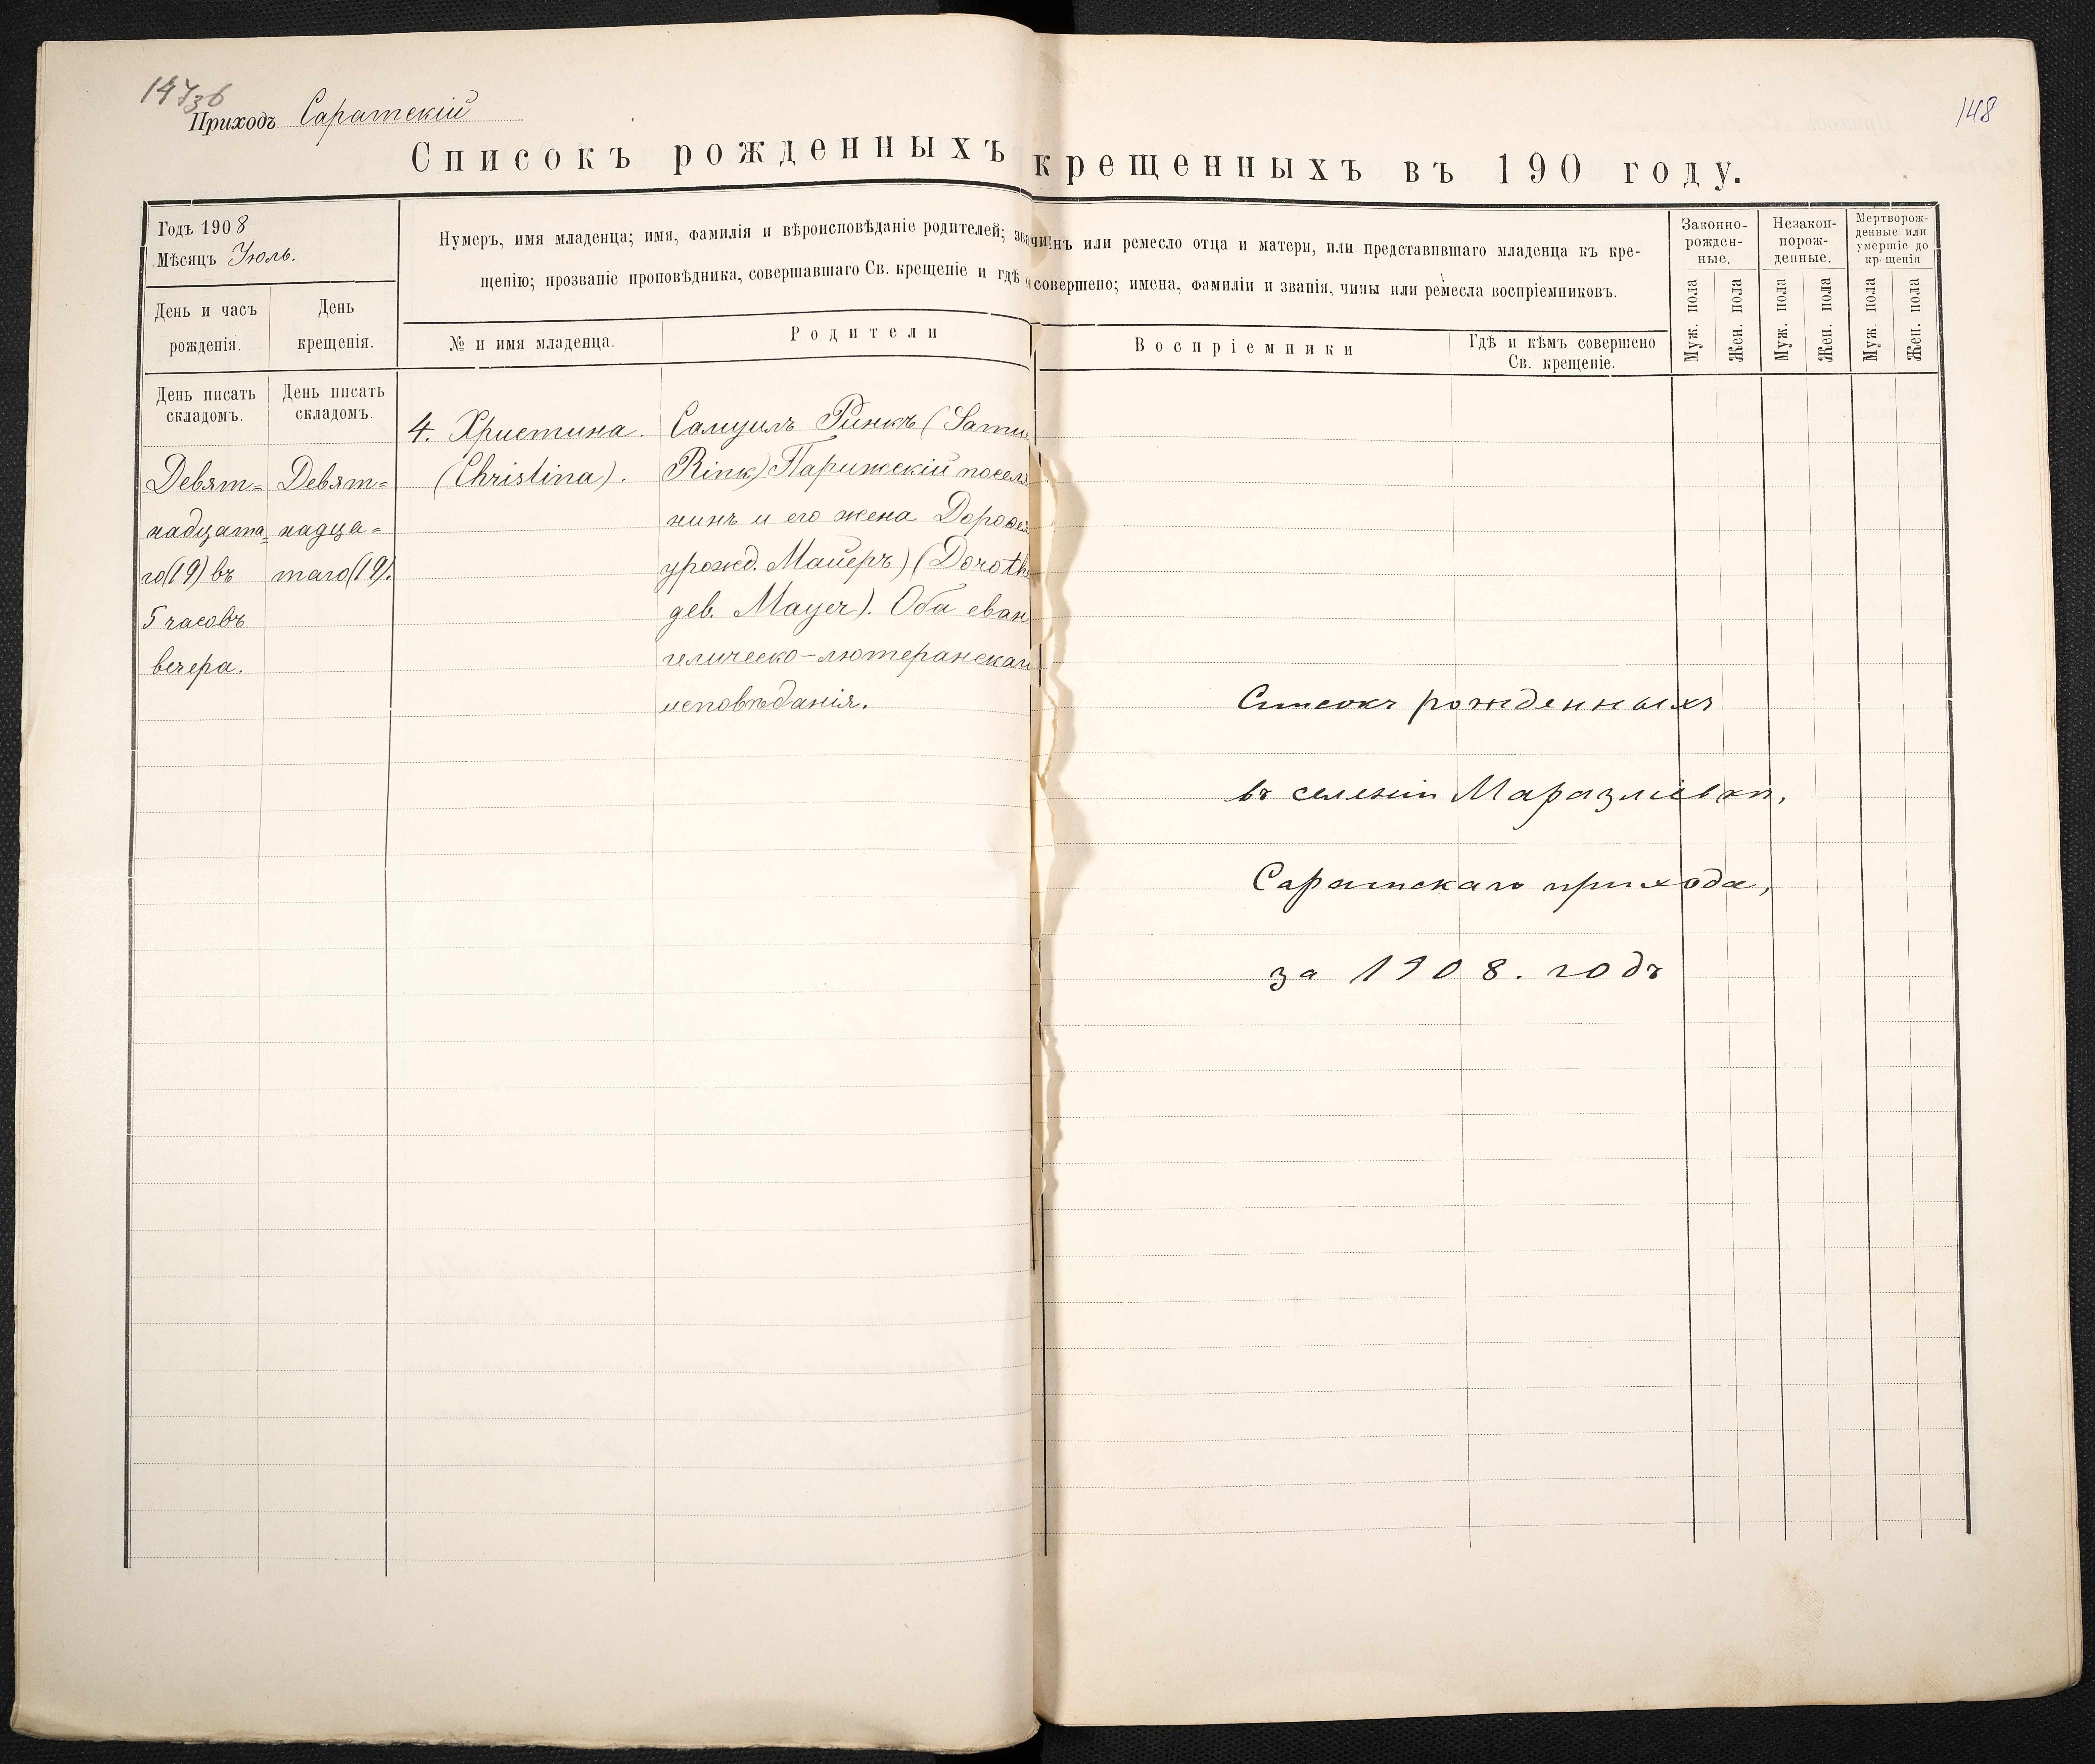 147об
148
Приходъ Саратскій
Списокъ рожденныхъ крещенныхъ въ 190 году.
Годъ 1908
Мѣсяцъ Июль.
День и часъ рожденія.
День крещенія.
Нумеръ, имя младенца; имя, фамилія и вѣроисповѣданіе родителей; зва
щенію; прозваніе проповѣдника, совершавшаго Св. крещеніе и гдѣ
№ и имя младенца.
Родители
чинъ или ремесло отца и матери, или представившаго младенца къ кре-
совершено; имена, фамиліи и званія, чины или ремесла воспріемниковъ.
Воспріемники
Гдѣ и кѣмъ совершено
Св. крещеніе.
Законно-
рожден-
ные.
Незакон-
норож-
денные.
Мертворож-
денные или
умершіе до
крещенія
Муж. пола
Жен. пола
Муж. пола
Жен. пола
Муж. пола
Жен. пола
День писать
складомъ.
День писать
складомъ.
Девят=
надцата=
го(19) въ
5 часовъ
вечера.
Девят=
надца=
таго(19).
4. Христина.
(Christina).
Самуилъ Ринкъ (Samu
Rink) Парижскій поселя
нинъ и его жена Доровея
урожд. Майеръ) (Doroth
дев. Mayer). Оба еван
гелическо-лютеранскаг
исповѣданія.
Списокъ рожденныхъ
въ селеніи Маразліевкѣ,
Саратскаго прихода,
за 1908. годъ